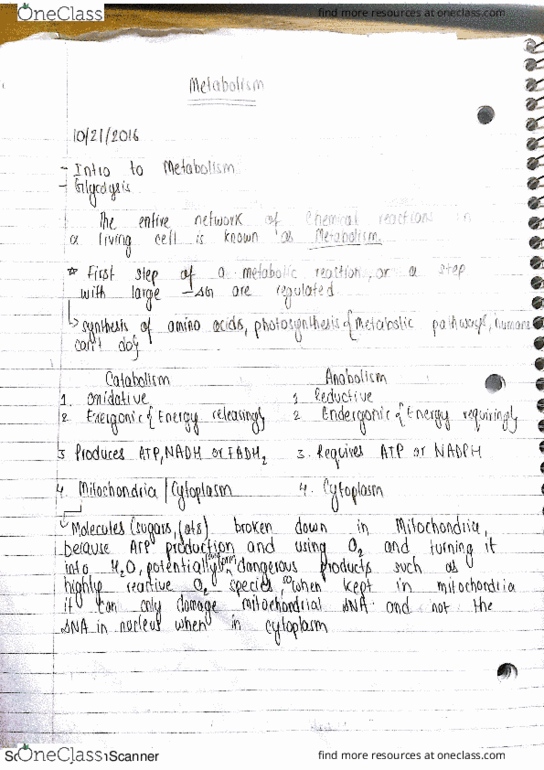 OneClass find more resources at oneclass.com
Metabolism
10/21/2016
- Intro to Metabolism
- Glycolysis
The entire network of chemical reactions in
a living cell is known as Metabolism.
* First step of a metabolic reaction, or a step
with large -ΔG are regulated
↳ synthesis of amino acids, photosynthesis { metabolic pathways, humans
can't do}
Catabolism Anabolism
1. Oxidative 1. Reductive
2. Exergonic { Energy releasing} 2. Endergonic { Energy requiring}
3 Produces ATP, NADH or FADH₂ 3. Requires ATP or NADPH
4. Mitochondria / Cytoplasm 4. Cytoplasm
↳ Molecules (sugars, fats) broken down in Mitochondria,
because ATP production and using O₂ and turning it
into H₂O, potentially form dangerous products such as
highly reactive O₂ species, so when kept in mitochondria
it can only damage mitochondrial DNA and not the
DNA in nucleus when in cytoplasm
OneClass Scanner find more resources at oneclass.com